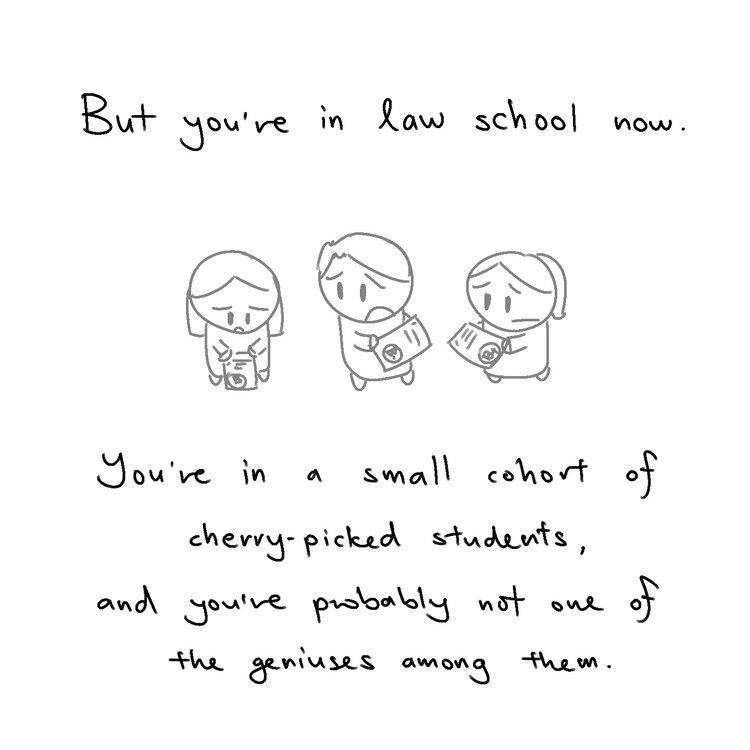 But you're in law school now.
You're in a small cohort of
cherry-picked students,
and you're probably not one of
the geniuses among them.